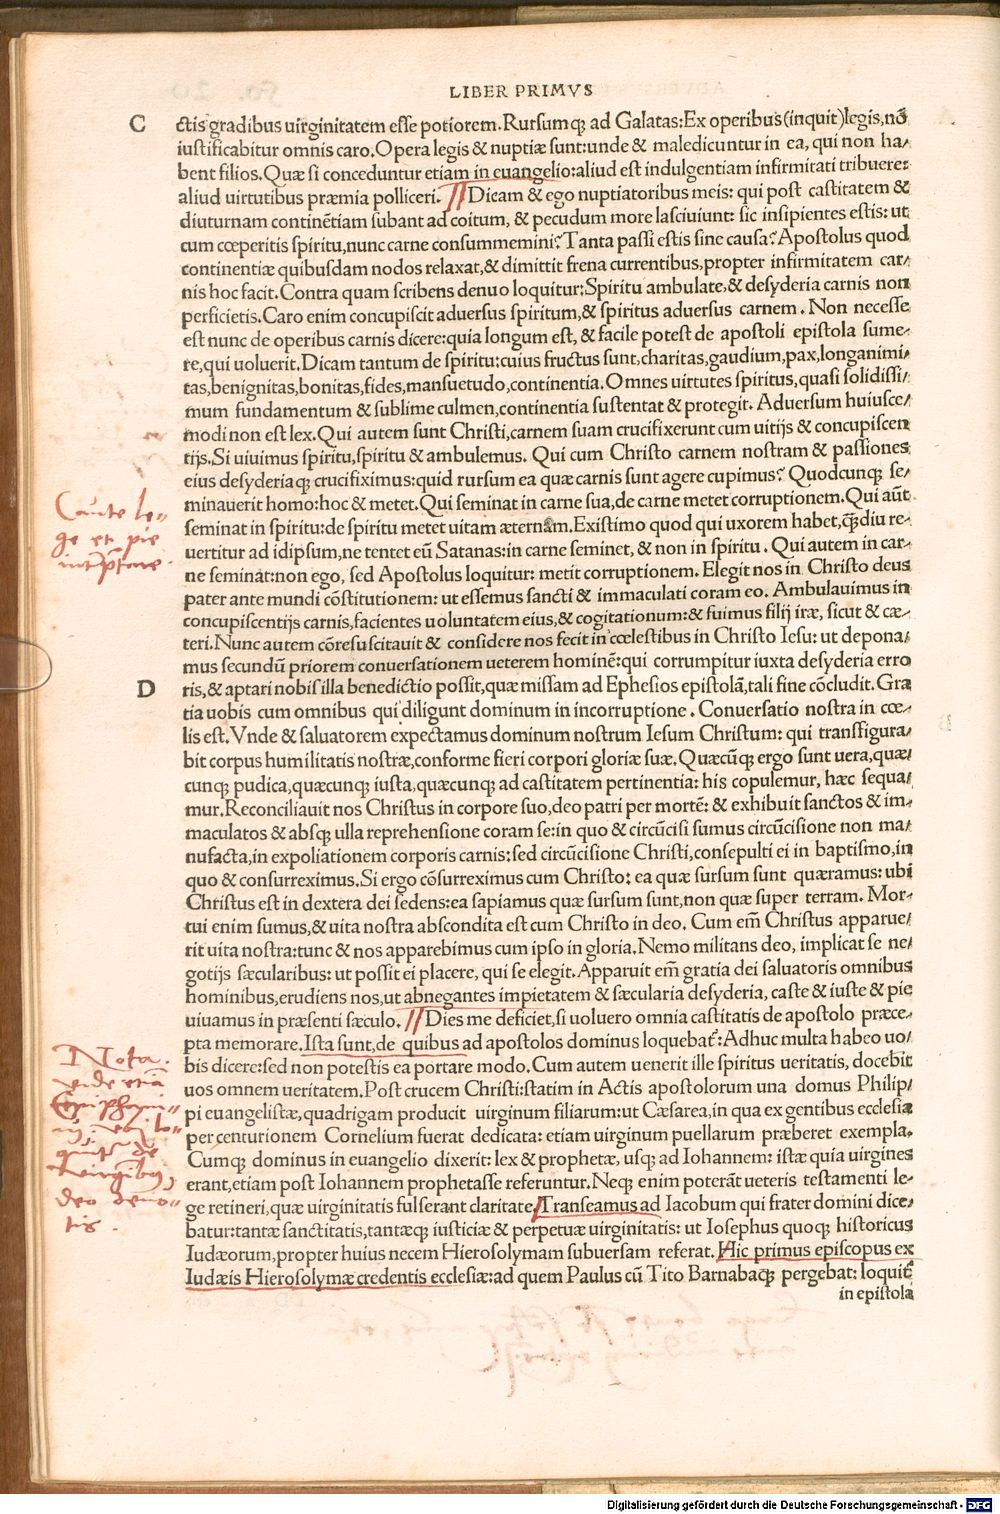 LIBER PRIMVS
C ctis gradibus uirginitatem esse potiorem. Rursumq; ad Galatas: Ex operibus (inquit) legis, nō
iustificabitur omnis caro. Opera legis & nuptiæ sunt: unde & maledicuntur in ea, qui non ha/
bent filios. Quæ si conceduntur etiam in euangelio: aliud est indulgentiam infirmitati tribuere:
aliud uirtutibus præmia polliceri. Dicam & ego nuptiatoribus meis: qui post castitatem &
diuturnam continētiam subant ad coitum, & pecudum more lasciuiunt: sic insipientes estis: ut
cum cœperitis spiritu, nunc carne consummemini? Tanta passi estis sine causa? Apostolus quod
continentiæ quibusdam nodos relaxat, & dimittit frena currentibus, propter infirmitatem car/
nis hoc facit. Contra quam scribens denuo loquitur: Spiritu ambulate, & desyderia carnis non
perficietis. Caro enim concupiscit aduersus spiritum, & spiritus aduersus carnem. Non necesse
est nunc de operibus carnis dicere: quia longum est, & facile potest de apostoli epistola sume-
re, qui uoluerit. Dicam tantum de spiritu: cuius fructus sunt, charitas, gaudium, pax, longanimi/
tas, benignitas, bonitas, fides, mansuetudo, continentia. Omnes uirtutes spiritus, quasi solidissi/
mum fundamentum & sublime culmen, continentia sustentat & protegit. Aduersum huiusce/
modi non est lex. Qui autem sunt Christi, carnem suam crucifixerunt cum uitijs & concupiscen
tijs. Si uiuimus spiritu, spiritu & ambulemus. Qui cum Christo carnem nostram & passiones
eius desyderiaq; crucifiximus: quid rursum ea quæ carnis sunt agere cupimus? Quodcunq; se/
minauerit homo: hoc & metet. Qui seminat in carne sua, de carne metet corruptionem. Qui aūt
seminat in spiritu: de spiritu metet uitam æternam. Existimo quod qui uxorem habet, q̄diu re-
uertitur ad idipsum, ne tentet eū Satanas: in carne seminet, & non in spiritu. Qui autem in car-
ne seminat: non ego, sed Apostolus loquitur: metit corruptionem. Elegit nos in Christo deus
pater ante mundi cōstitutionem: ut essemus sancti & immaculati coram eo. Ambulauimus in
concupiscentijs carnis, facientes uoluntatem eius, & cogitationum: & fuimus filij iræ, sicut & cæ-
teri. Nunc autem cōresuscitauit & considere nos fecit in cœlestibus in Christo Iesu: ut depona/
mus secundū priorem conuersationem ueterem hominē: qui corrumpitur iuxta desyderia erro
D ris, & aptari nobis illa benedictio possit, quæ missam ad Ephesios epistolā, tali fine cōcludit. Gra
tia uobis cum omnibus qui diligunt dominum in incorruptione. Conuersatio nostra in cœ-
lis est. Vnde & saluatorem expectamus dominum nostrum Iesum Christum: qui transfigura/
bit corpus humilitatis nostræ, conforme fieri corpori gloriæ suæ. Quæcūq; ergo sunt uera, quæ
cunq; pudica, quæcunq; iusta, quæcunq; ad castitatem pertinentia: his copulemur, hæc sequa/
mur. Reconciliauit nos Christus in corpore suo, deo patri per mortē: & exhibuit sanctos & im/
maculatos & absq; ulla reprehensione coram se: in quo & circūcisi sumus circūcisione non ma/
nufacta, in expoliationem corporis carnis: sed circūcisione Christi, consepulti ei in baptismo, in
quo & consurreximus. Si ergo cōsurreximus cum Christo: ea quæ sursum sunt quæramus: ubi
Christus est in dextera dei sedens: ea sapiamus quæ sursum sunt, non quæ super terram. Mor-
tui enim sumus, & uita nostra abscondita est cum Christo in deo. Cum em̄ Christus apparue/
rit uita nostra: tunc & nos apparebimus cum ipso in gloria. Nemo militans deo, implicat se ne/
gotijs sæcularibus: ut possit ei placere, qui se elegit. Apparuit em̄ gratia dei saluatoris omnibus
hominibus, erudiens nos, ut abnegantes impietatem & sæcularia desyderia, caste & iuste & pie
uiuamus in præsenti sæculo. Dies me deficiet, si uoluero omnia castitatis de apostolo præce/
pta memorare. Ista sunt, de quibus ad apostolos dominus loquebat̄: Adhuc multa habeo uo/
bis dicere: sed non potestis ea portare modo. Cum autem uenerit ille spiritus ueritatis, docebit
uos omnem ueritatem. Post crucem Christi: statim in Actis apostolorum una domus Philip/
pi euangelistæ, quadrigam producit uirginum filiarum: ut Cæsarea, in qua ex gentibus ecclesia
per centurionem Cornelium fuerat dedicata: etiam uirginum puellarum præberet exempla.
Cumq; dominus in euangelio dixerit: lex & prophetæ, usq; ad Iohannem: istæ quia uirgines
erant, etiam post Iohannem prophetasse referuntur. Neq; enim poterāt ueteris testamenti le-
ge retineri, quæ uirginitatis fulserant claritate. Transeamus ad Iacobum qui frater domini dice/
batur: tantæ sanctitatis, tantæq; iusticiæ & perpetuæ uirginitatis: ut Iosephus quoq; historicus
Iudæorum, propter huius necem Hierosolymam subuersam referat. Hic primus episcopus ex
Iudæis Hierosolymæ credentis ecclesiæ: ad quem Paulus cū Tito Barnabaq; pergebat: loquit̄
in epistola
Caute le-
ge et pie
interp̄tare.
Nota.
vide etiā
Epiphani-
loquitur de
virginibus
deo deuo-
tis.
Digitalisierung gefördert durch die Deutsche Forschungsgemeinschaft - DFG